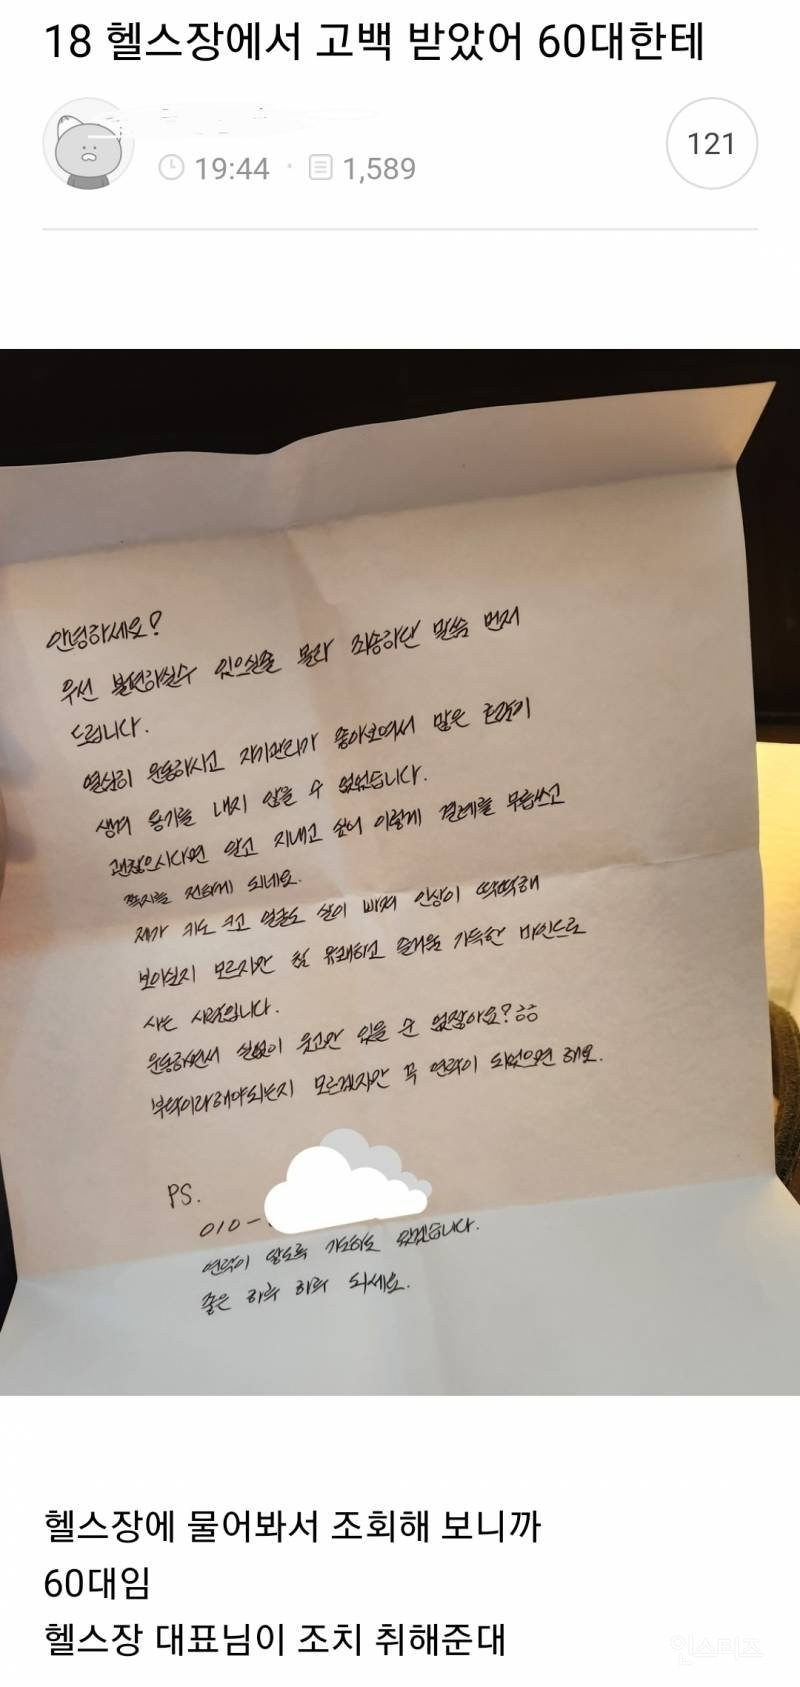 18 헬스장에서 고백 받았어 60대한테
19:44 · 1,589
121
안녕하세요?
우선 불편하실수 있으실줄 몰라 죄송하단 말씀 먼저
드립니다.
열심히 운동하시고 자기관리가 좋아보여서 많은 호감이
생겨 용기를 내지 않을 수 없었습니다.
괜찮으시다면 알고 지내고 싶어 이렇게 결례를 무릅쓰고
쪽지를 전하게 되네요.
제가 키도 크고 얼굴도 살이 빠져 인상이 딱딱해
보이실지 모르지만 참 유쾌하고 즐거움 가득한 마인드로
사는 사람입니다.
운동하면서 실없이 웃고만 있을 순 없잖아요? ㅎㅎ
부탁이라해야되는지 모르겠지만 꼭 연락이 되었으면 해요.
PS.
010-
연락이 왔도록 기도하도 있겠습니다.
좋은 하루 하루 되세요.
헬스장에 물어봐서 조회해 보니까
60대임
헬스장 대표님이 조치 취해준대
인스티즈